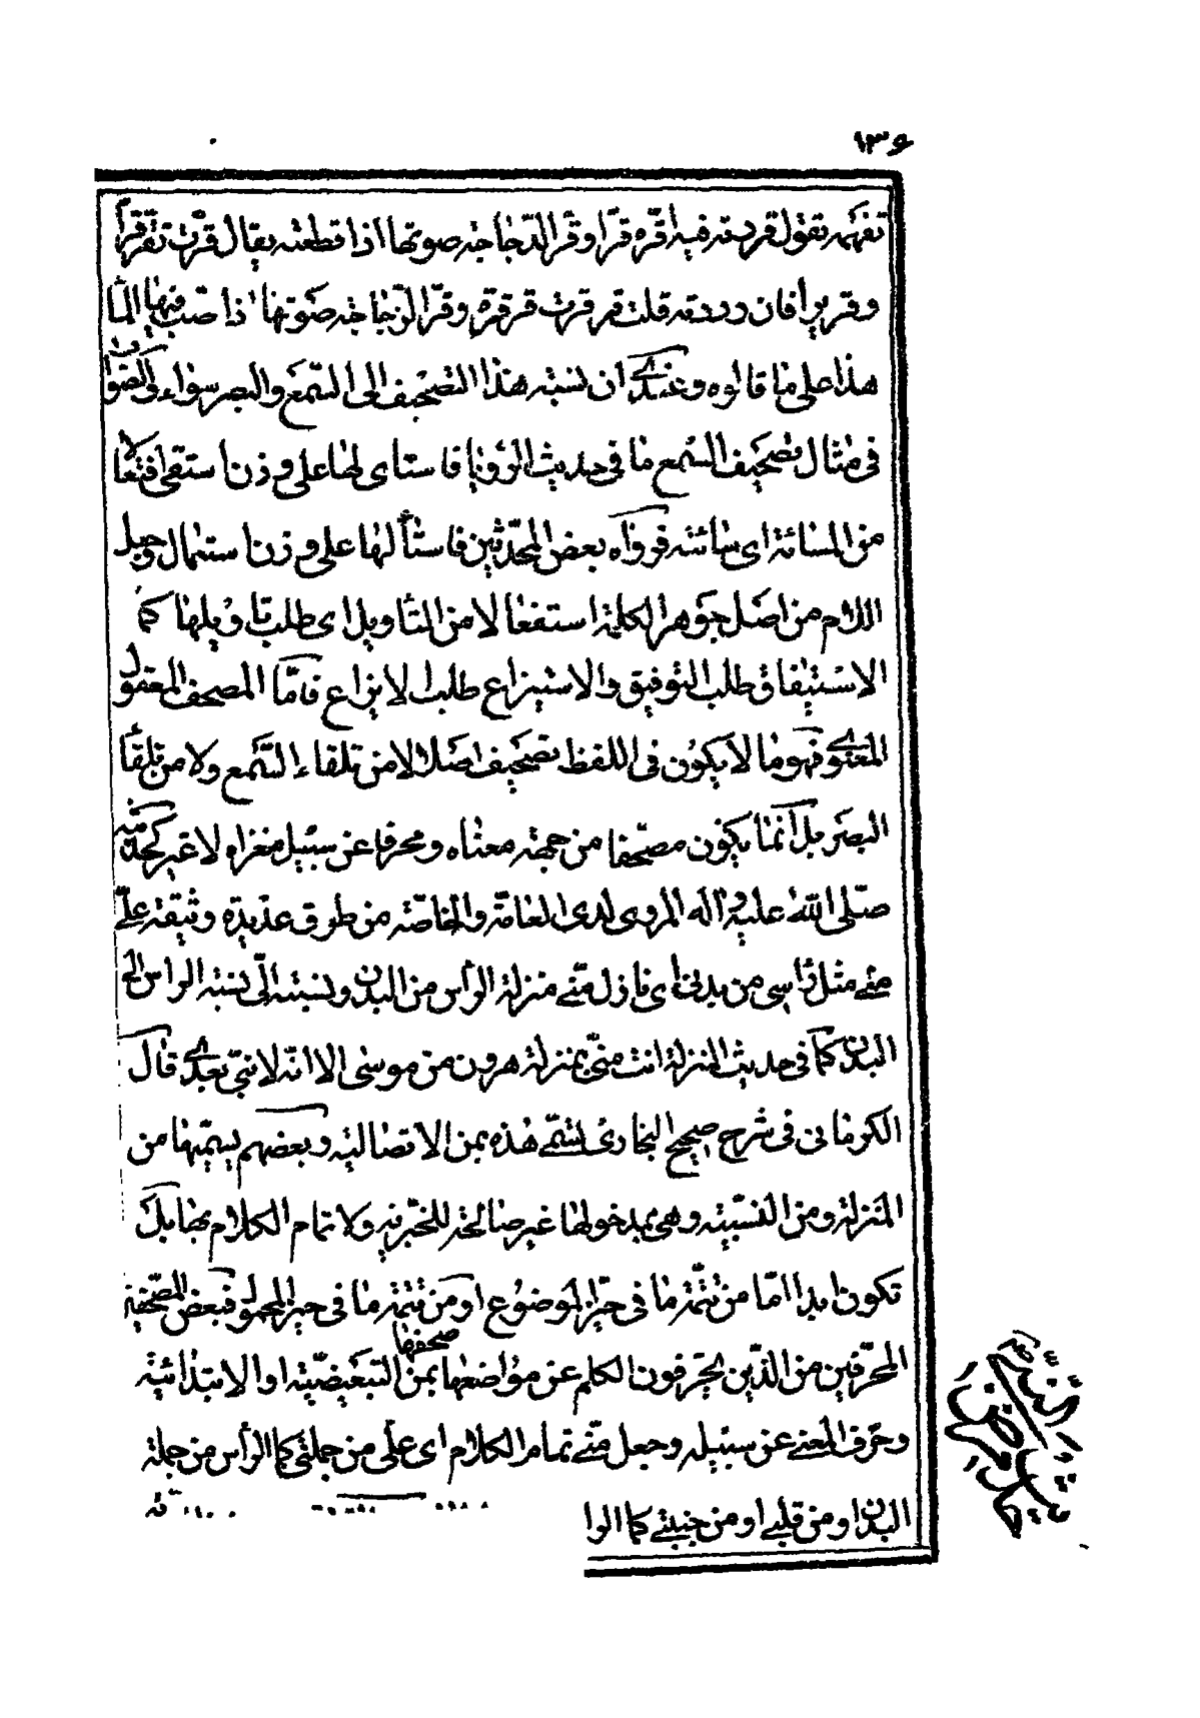 ١٣۶
تفهمه تقول قررته فيه أقره قرا وقر الدجاجة صوتها اذا قطعته يقال قرت تقر قرا
وقريرا فان رددته قلت قرقرت قرقرة وقر الزجاجة صوتها اذا صب فيها الما
هذا على ما قالوه وعندى ان نسبة هذا التصحيف الى السمع والبصر سواء والصواب
فى مثال تصحيف السمع ما فى حديث الرؤيا فاستاى لها على وزن استقى افتعالا
من المسائة اى سائته فرواه بعض المحدثين فاستألها على وزن استمال وجعل
اللام من اصل جوهر الكلمة استفعالا من التأويل اى طلب تاويلها كما
الاستيفاق طلب التوفيق والاستيزاع طلب الايزاع فاما المصحف المعقول
المعنوى فهو ما لا يكون فى اللفظ تصحيف اصلا لا من تلقاء السمع ولا من تلقأ
البصر بل انما يكون مصحفا من جهة معناه ومحرفا عن سبيل مغزاه لا غير كحديثه
صلى الله عليه وآله المروى لدى العامة والخاصة من طرق عديدة وثيقة على
منى مثل راسى من بدنى اى نازل منى منزلة الرأس من البدن ونسبته الى نسبة الراس الى
البدن كما فى حديث المنزلة انت منى بمنزلة هرون من موسى الا انه لا نبى بعدى قال
الكرمانى فى شرح صحيح البخارى تسمى هذه بمن الاتصالية وبعضهم يسميها من
المنزلة ومن النسبية وهى بمدخولها غير صالحة للخبرية ولا تمام الكلام بها بل
تكون ابدا اما من تتمة ما فى حيز الموضوع او من تتمة ما فى حيز المحمول فبعض المصحفين
المحرفين من الذين يحرفون الكلم عن مواضعها صحفها بمن التبعيضية او الابتدائية
وحرف المعنى عن سبيله وجعل منى تمام الكلام اى على من جملتى كما الرأس من جملة
البدن او من قلبى او من جنبتى كما الرا